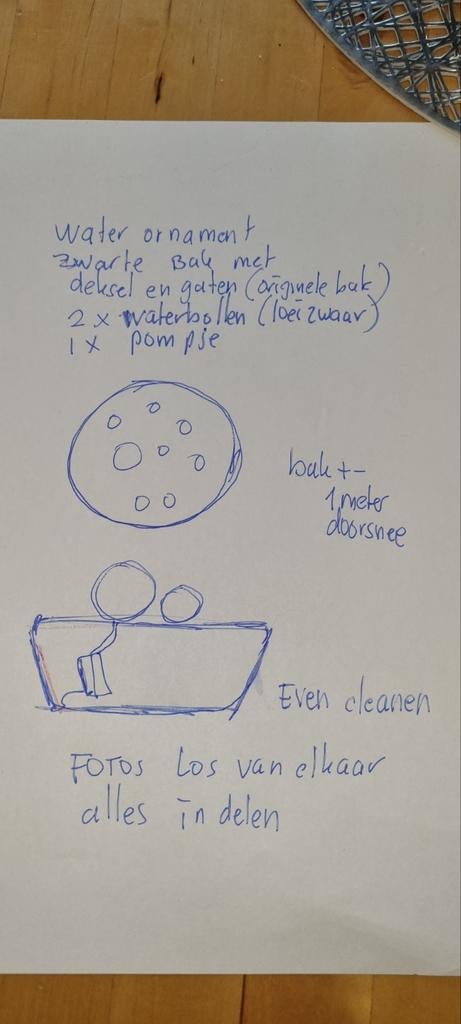 Water ornament
zwarte Bak met
deksel en gaten (originele bak)
2 x waterbollen (loei zwaar)
1 x pompje
bak +-
1 meter
doorsnee
Even cleanen
FOTOS Los van elkaar
alles in delen